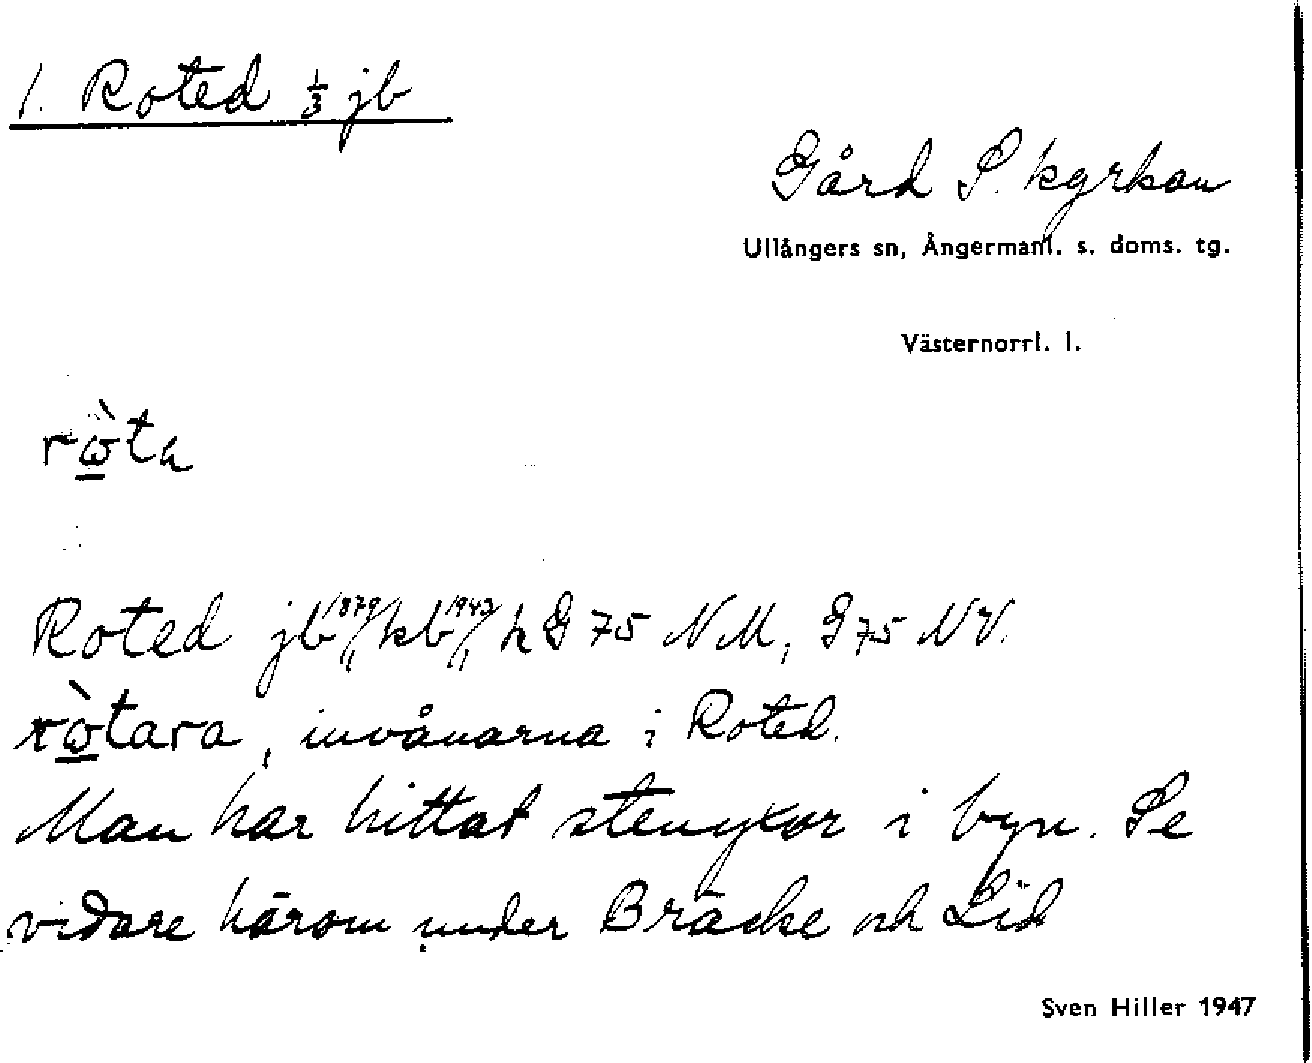 1. Roted 1/3 jb
Gård S. kyrkan
Ullångers sn, Ångermanl. s. doms. tg.
Västernorrl. l.
rὼta
Roted jb 1879/11 kb 1943/11 h G 75 NM, G 75 NV.
rὼtara, invånarna i Roted.
Man har hittat stenyxor i byn. Se
vidare härom under Bräcke och Lid
Sven Hiller 1947